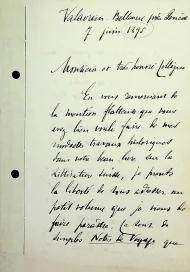 Valavran - Bellevue près Genève
7 juin 1895
Monsieur et très honoré Collègue
En vous remerciant de
la mention flatteuse que vous
avez bien voulu faire de mes
modestes travaux historiques
dans votre beau livre sur la
littérature suisse, je prends
la liberté de vous adresser un
petit volume que je viens de
faire paraître. Ce sont de
simples Notes de Voyages que